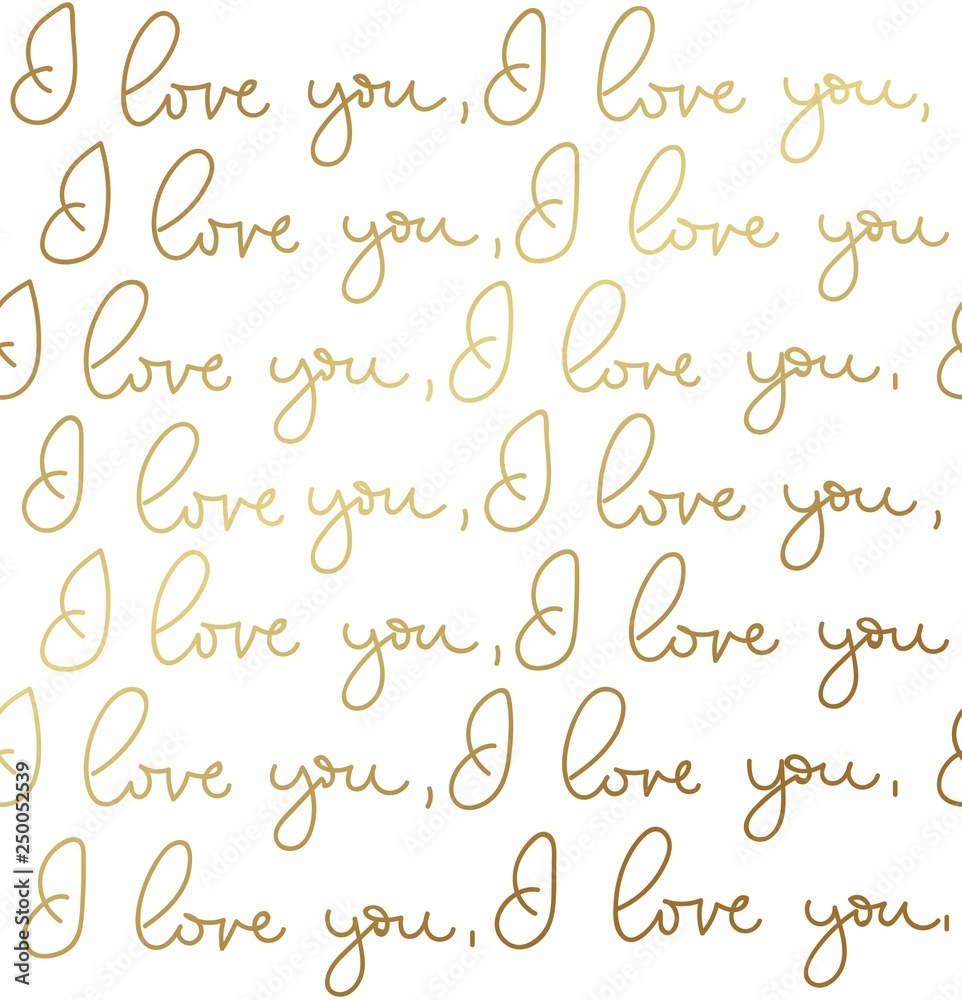 I love you, I love you,
I love you, I love you
I love you, I love you, I
I love you, I love you,
I love you, I love you
I love you, I love you, I
I love you, I love you,
Adobe Stock | #250052539